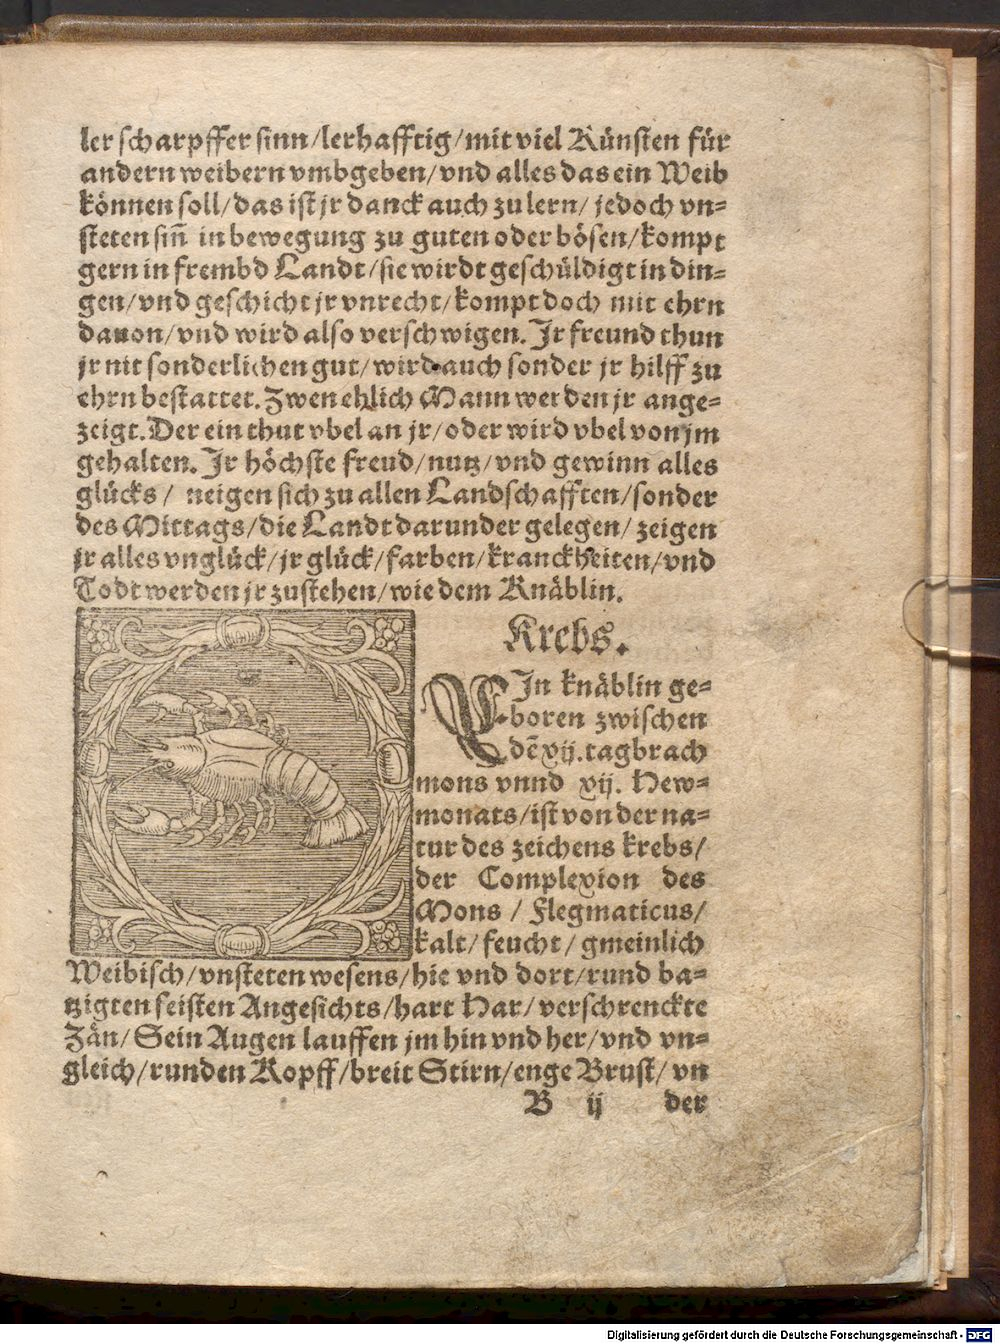 ler scharpffer sinn/lerhafftig/mit viel Künsten für
andern weibern vmbgeben/vnd alles das ein Weib
können soll/das ist jr danck auch zu lern/ jedoch vn=
steten siñ in bewegung zu guten oder bösen/kompt
gern in frembd Landt/sie wirdt geschüldigt in din=
gen/vnd geschicht jr vnrecht/kompt doch mit ehrn
dauon/vnd wird also verschwigen. Jr freund thun
jr nit sonderlichen gut/wird auch sonder jr hilff zu
ehrn bestattet. Zwen ehlich Mann werden jr ange=
zeigt. Der ein thut vbel an jr/oder wird vbel von jm
gehalten. Jr höchste freud/nutz/vnd gewinn alles
glücks/ neigen sich zu allen Landschafften/sonder
des Mittags/die Landt darunder gelegen/zeigen
jr alles vnglück/jr glück/farben/kranckheiten/vnd
Todt werden jr zustehen/wie dem Knäblin.
Krebs.
EJn knäblin ge=
boren zwischen
dē xij. tag brach
mons vnnd xij. Hew=
monats/ist von der na=
tur des zeichens krebs/
der Complexion des
Mons/Flegmaticus/
kalt/feucht/gmeinlich
Weibisch/vnsteten wesens/hie vnd dort/rund ba=
tzigten feisten Angesichts/hart Har/verschrenckte
Zän/Sein Augen lauffen jm hin vnd her/vnd vn=
gleich/runden Kopff/breit Stirn/enge Brust/vn
B ij der
Digitalisierung gefördert durch die Deutsche Forschungsgemeinschaft - DFG